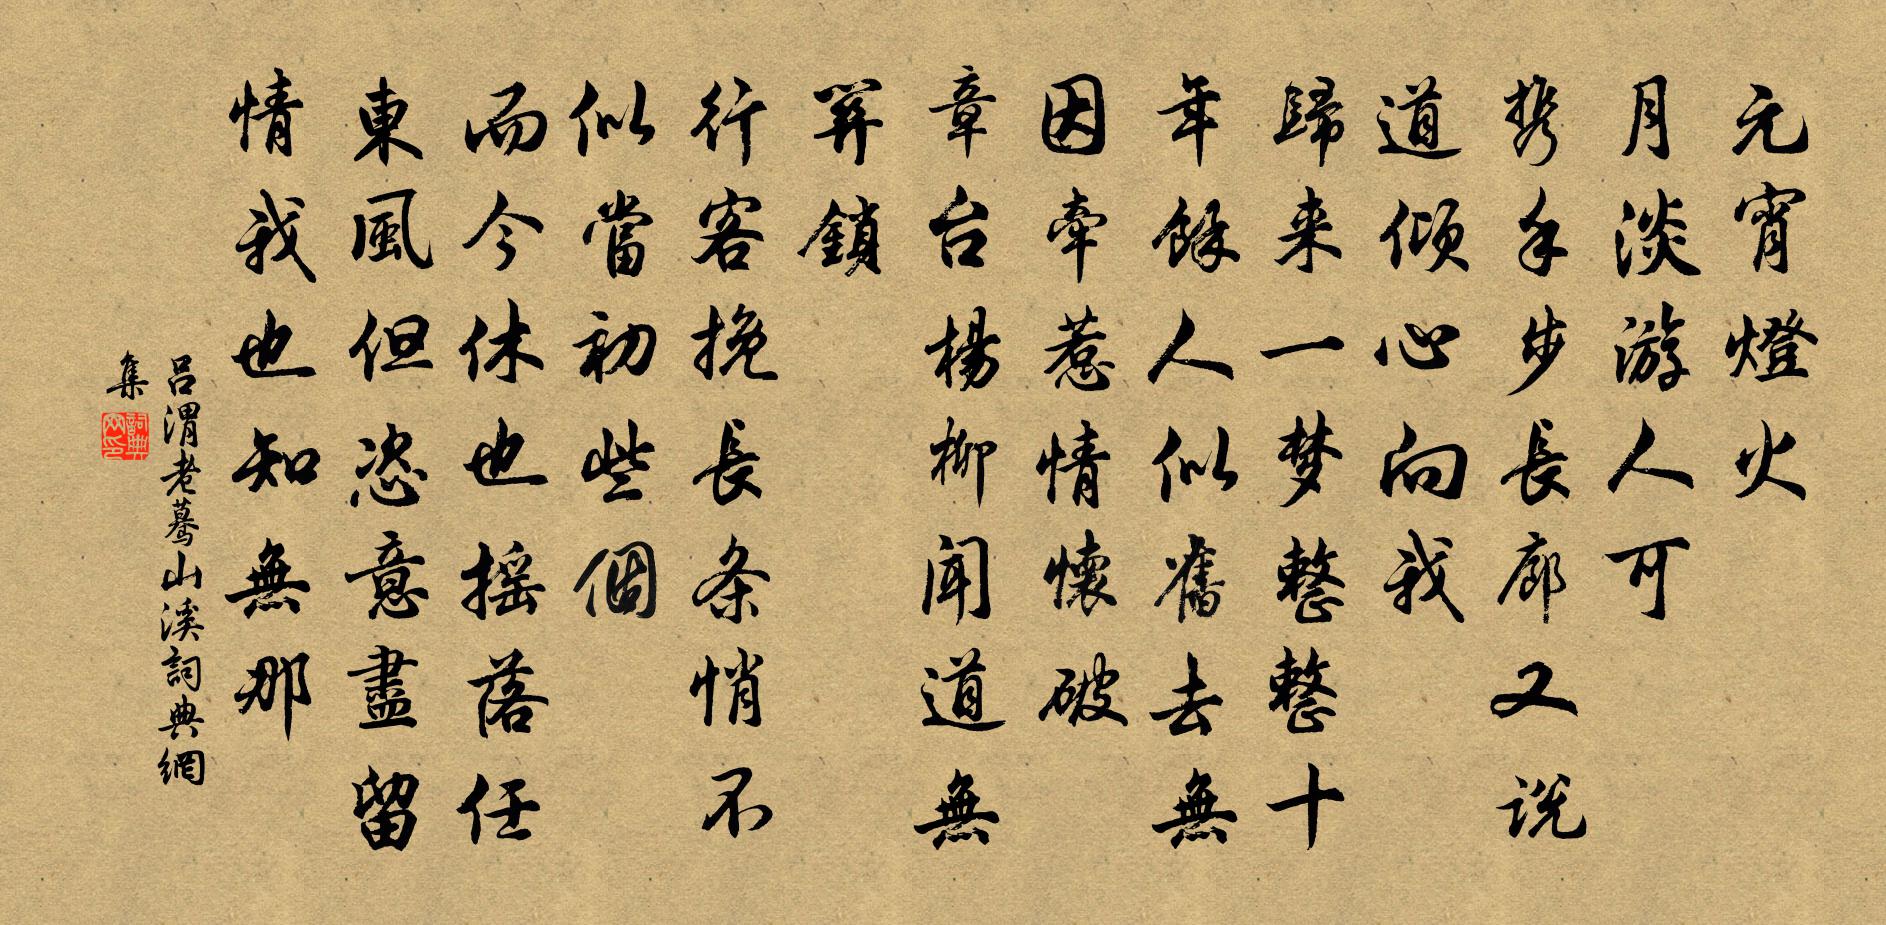 元宵燈火
月淡游人可
携手步長廊又説
道傾心向我
歸来一梦整整十
年餘人似舊去無
因牽惹情懷破
章台楊柳聞道無
關鎖
行客挽長条悄不
似當初些個
而今休也摇落任
東風但恣意盡留
情我也知無那
吕渭老驀山溪詞典網
集
詞典网印